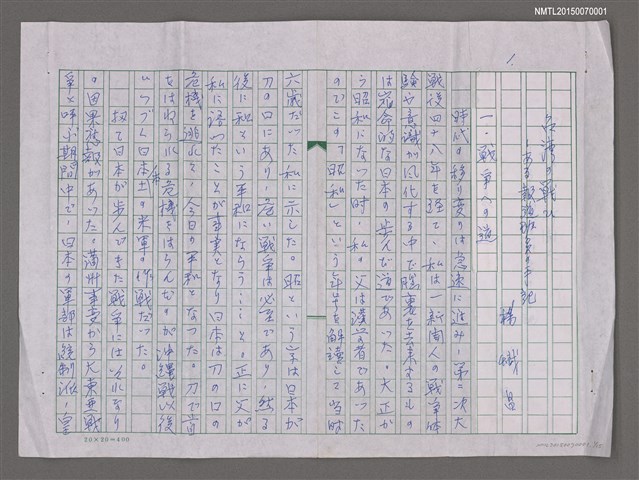 NMTL20150070001
1.
台湾の戦ひ
ある報道班員の手記
楊
一・戦争への道
時代の移り変りは急速に進み、第二次大
戦後四十八年を経て、私は一新聞人の戦争体
験や意識が風化する中で脳裏を去来するもの
は宿命的な日本の歩んだ道であった。大正か
ら昭和になった時、私の父は漢学者であった
のでこの「昭和」という年号を解読して当時
六歳だった私に示した。昭という字は日本が
刀の口にあり、危い戦争は必至であり、然る
後に和という平和にならう・・と。正に父が
私に語ったことが事実となり日本は刀の口の
危機を逃れて、今日の平和となった。刀で首
をはねられる危機をはらんだのが沖縄戦以後
いうづく日本本土の米軍の作戦だった。
扨て日本が歩んできた戦争には いなり
の因果応報があった。満州事変から大東亜戦
争と呼ぶ期間中で、日本の軍部は統制派、皇
20×20=400